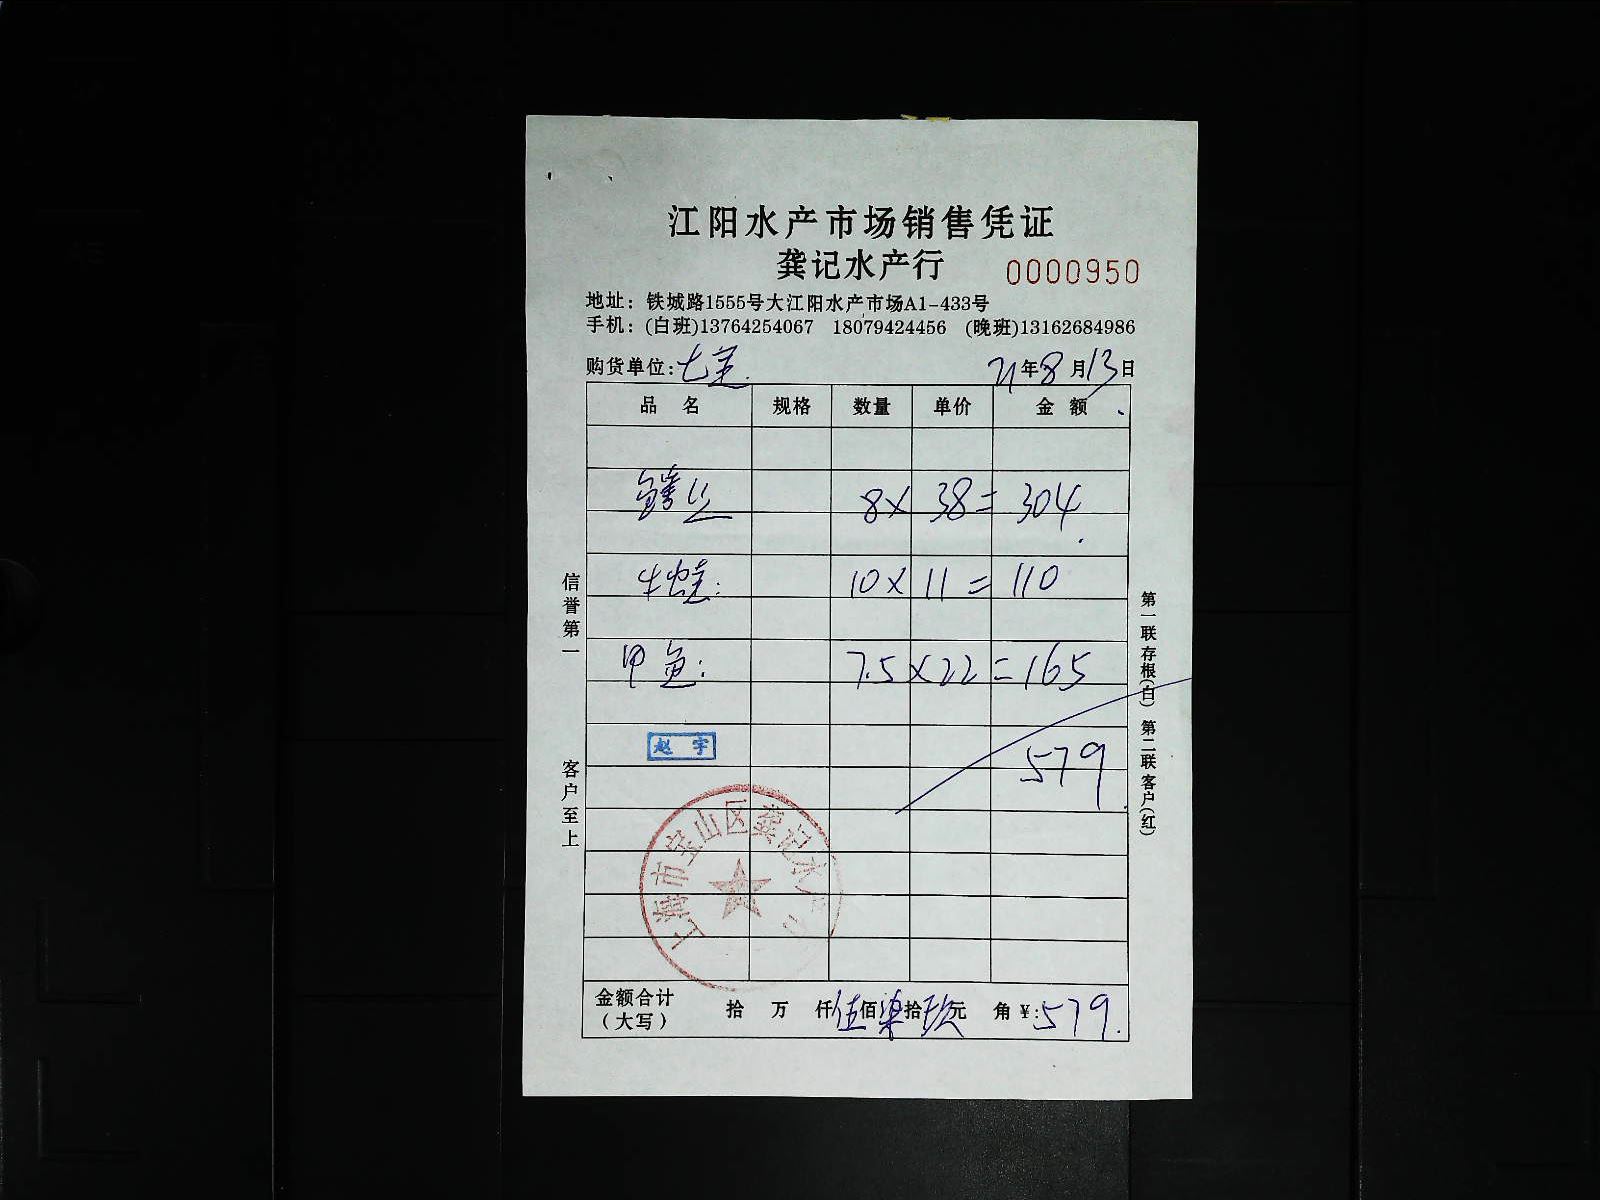 江阳水产市场销售凭证
龚记水产行 0000950
地址：铁城路1555号大江阳水产市场A1-433号
手机：(白班)13764254067 18079424456 (晚班)13162684986
购货单位：七宝 21年8月13日
品名 规格 数量 单价 金额
鳝丝 8× 38= 304
牛蛙： 10× 11= 110
甲鱼： 7.5×22=165
赵宇 579
上海市宝山区龚记水产行
金额合计（大写） 拾 万 仟伍佰柒拾玖元 角¥:579.
信誉第一
客户至上
第一联存根(白) 第二联客户(红)